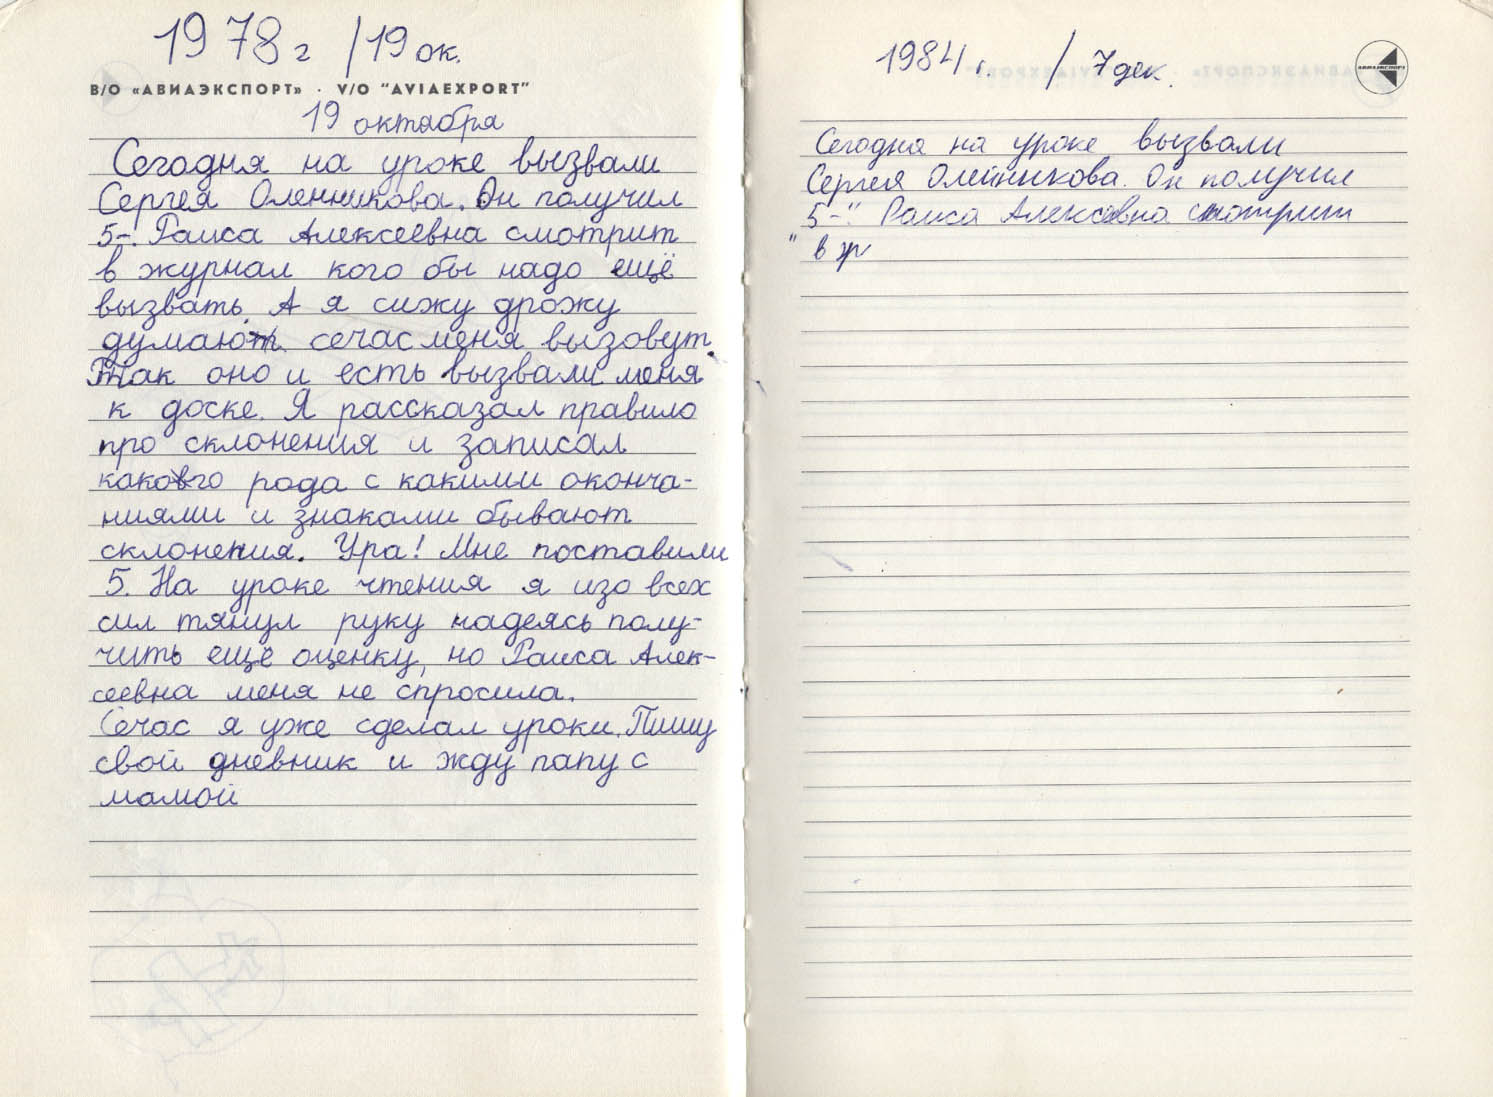 1978 г /19 ок.
В/О «АВИАЭКСПОРТ» · V/O "AVIAEXPORT"
19 октября
Сегодня на уроке вызвали
Сергея Оленникова. Он получил
5-. Раиса Алексеевна смотрит
в журнал кого бы надо ещё
вызвать. А я сижу дрожу
думаю сечас меня вызовут.
Так оно и есть вызвали меня
к доске. Я рассказал правило
про склонения и записал
какого рода с какими оконча-
ниями и знаками бывают
склонения. Ура! Мне поставили
5. На уроке чтения я изо всех
сил тянул руку надеясь полу-
чить ещё оценку, но Раиса Алек-
сеевна меня не спросила.
Сечас я уже сделал уроки. Пишу
свой дневник и жду папу с
мамой
1984 г. / 7 дек.
АВИАЭКСПОРТ
Сегодня на уроке вызвали
Сергея Олейникова. Он получил
5-" Раиса Алексевна смотрит
" в жр